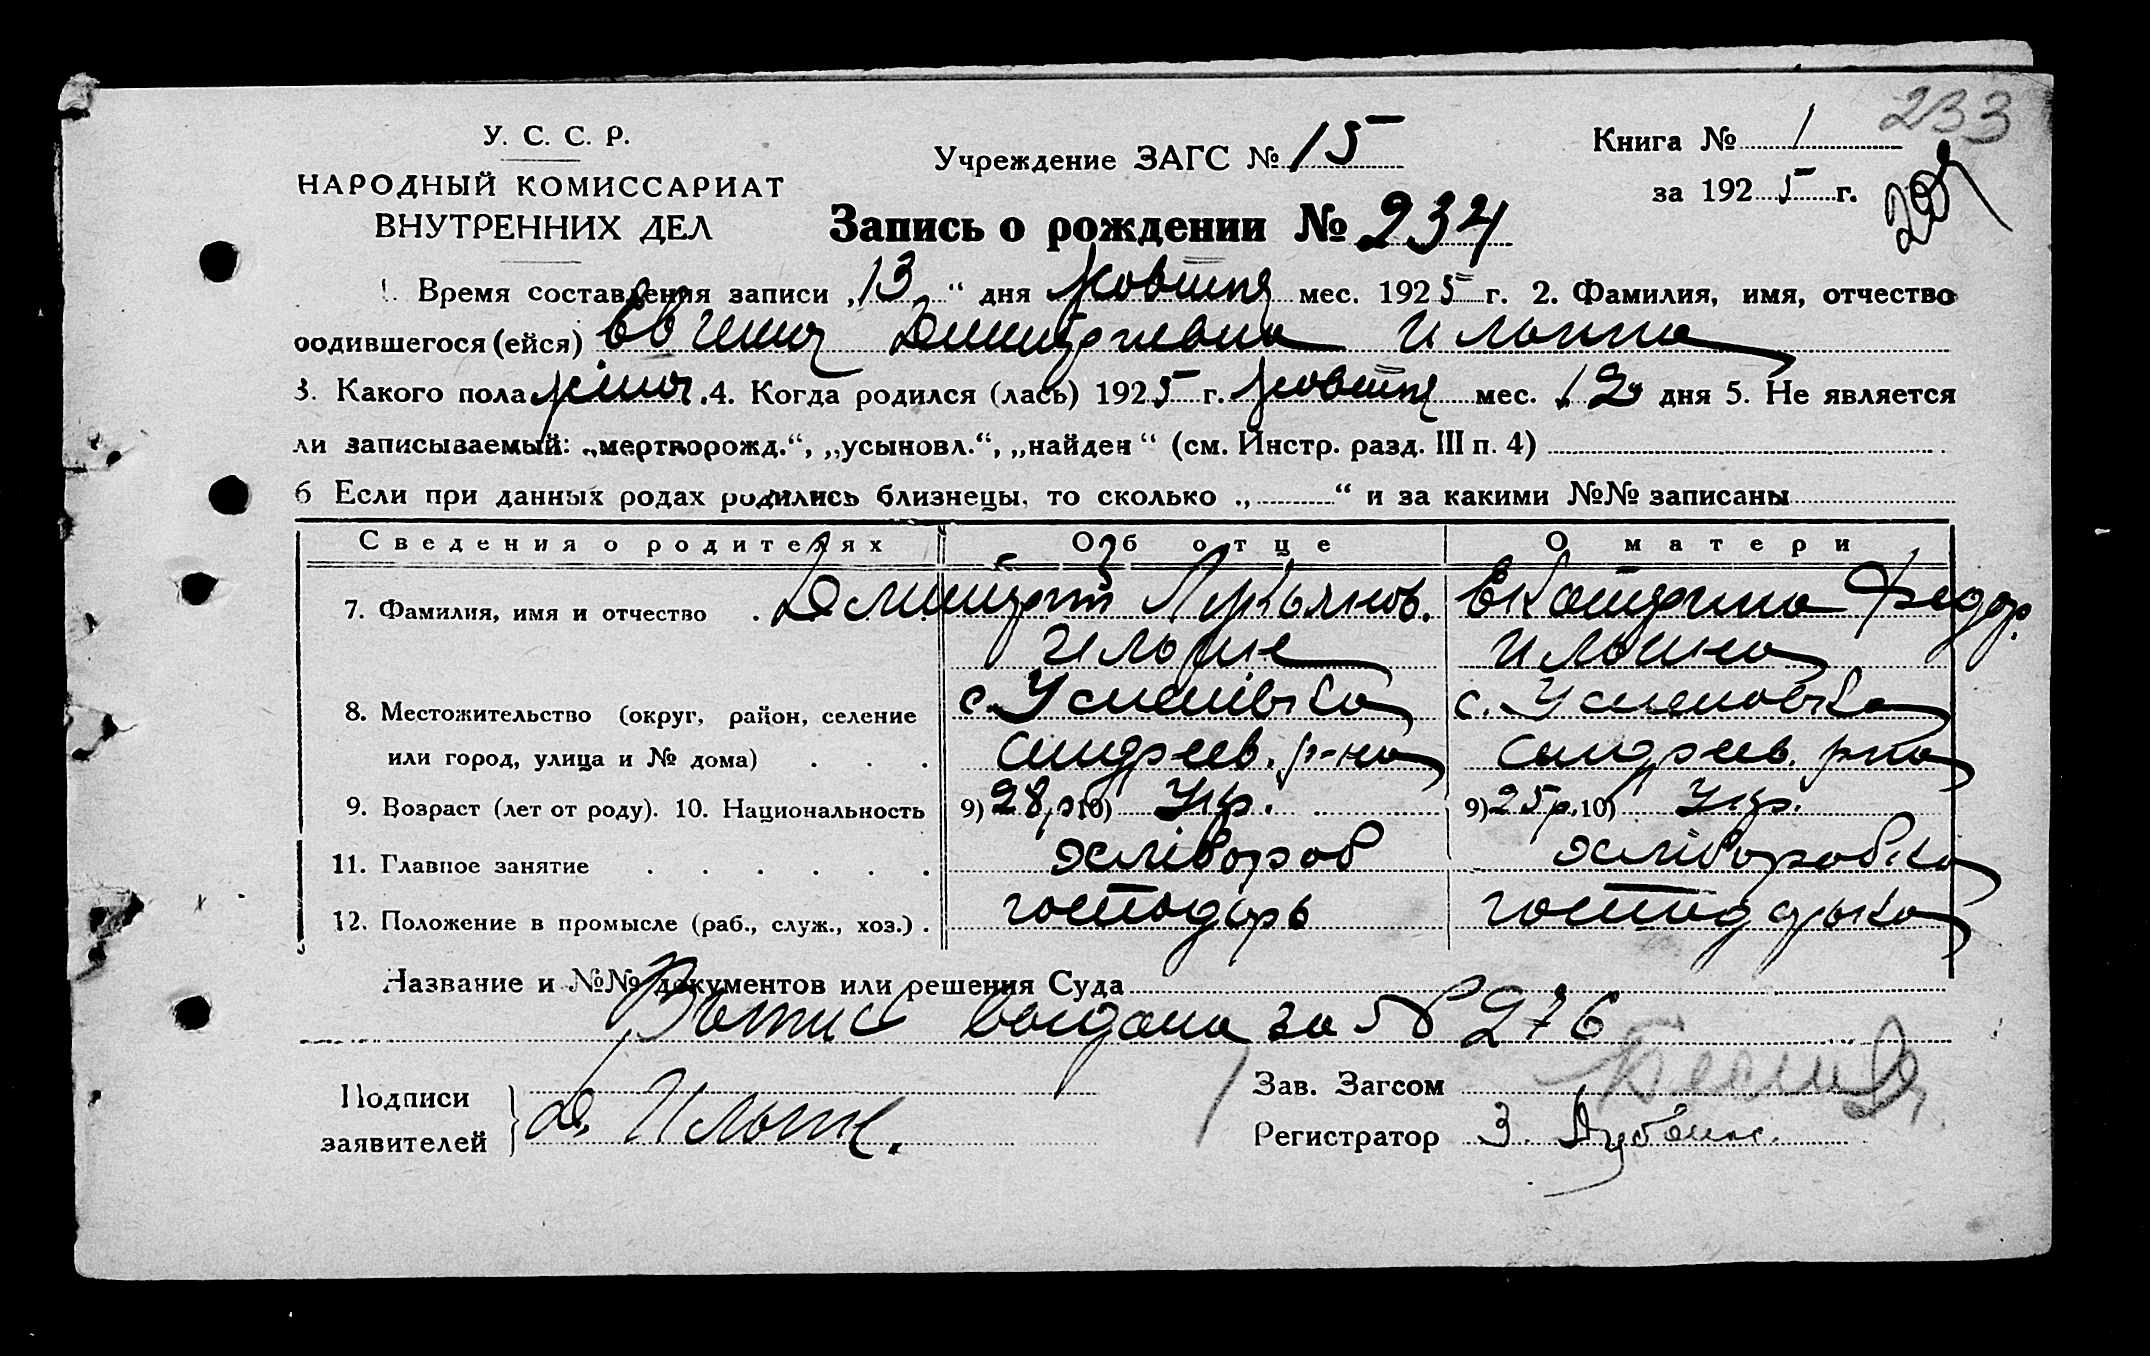 233
У. С. С. Р.
НАРОДНЫЙ КОМИССАРИАТ
ВНУТРЕННИХ ДЕЛ
Учреждение ЗАГС № 15
Книга № 1
за 1925 г.
Запись о рождении № 234
1. Время составления записи „13“ дня жовтня мес. 1925 г. 2. Фамилия, имя, отчество
родившегося (ейся) Евгения Дмитриевна Ильина
3. Какого пола жіноч. 4. Когда родился (лась) 1925 г. жовтня мес. 12 дня 5. Не является
ли записываемый: „мертворожд.“, „усыновл.“, „найден“ (см. Инстр. разд. III п. 4)
6 Если при данных родах родились близнецы, то сколько „ “ и за какими №№ записаны
Сведения о родителях Об отце О матери
7. Фамилия, имя и отчество Дмитрий Лукьянов. Екатерина Федор.
Ильин Ильина
8. Местожительство (округ, район, селение с. Успенівка с. Успеновка
или город, улица и № дома) Андреев. р-на Андреев. рна
9. Возраст (лет от роду). 10. Национальность 9) 28 р. 10) Укр. 9) 25 р. 10) Укр.
11. Главное занятие хлібороб хліборобка
12. Положение в промысле (раб., служ., хоз.) господарь
Название и №№ документов или решения Суда
Выпись выдана за № 276
Подписи
заявителей
Д. Ильин.
Зав. Загсом
Регистратор З.